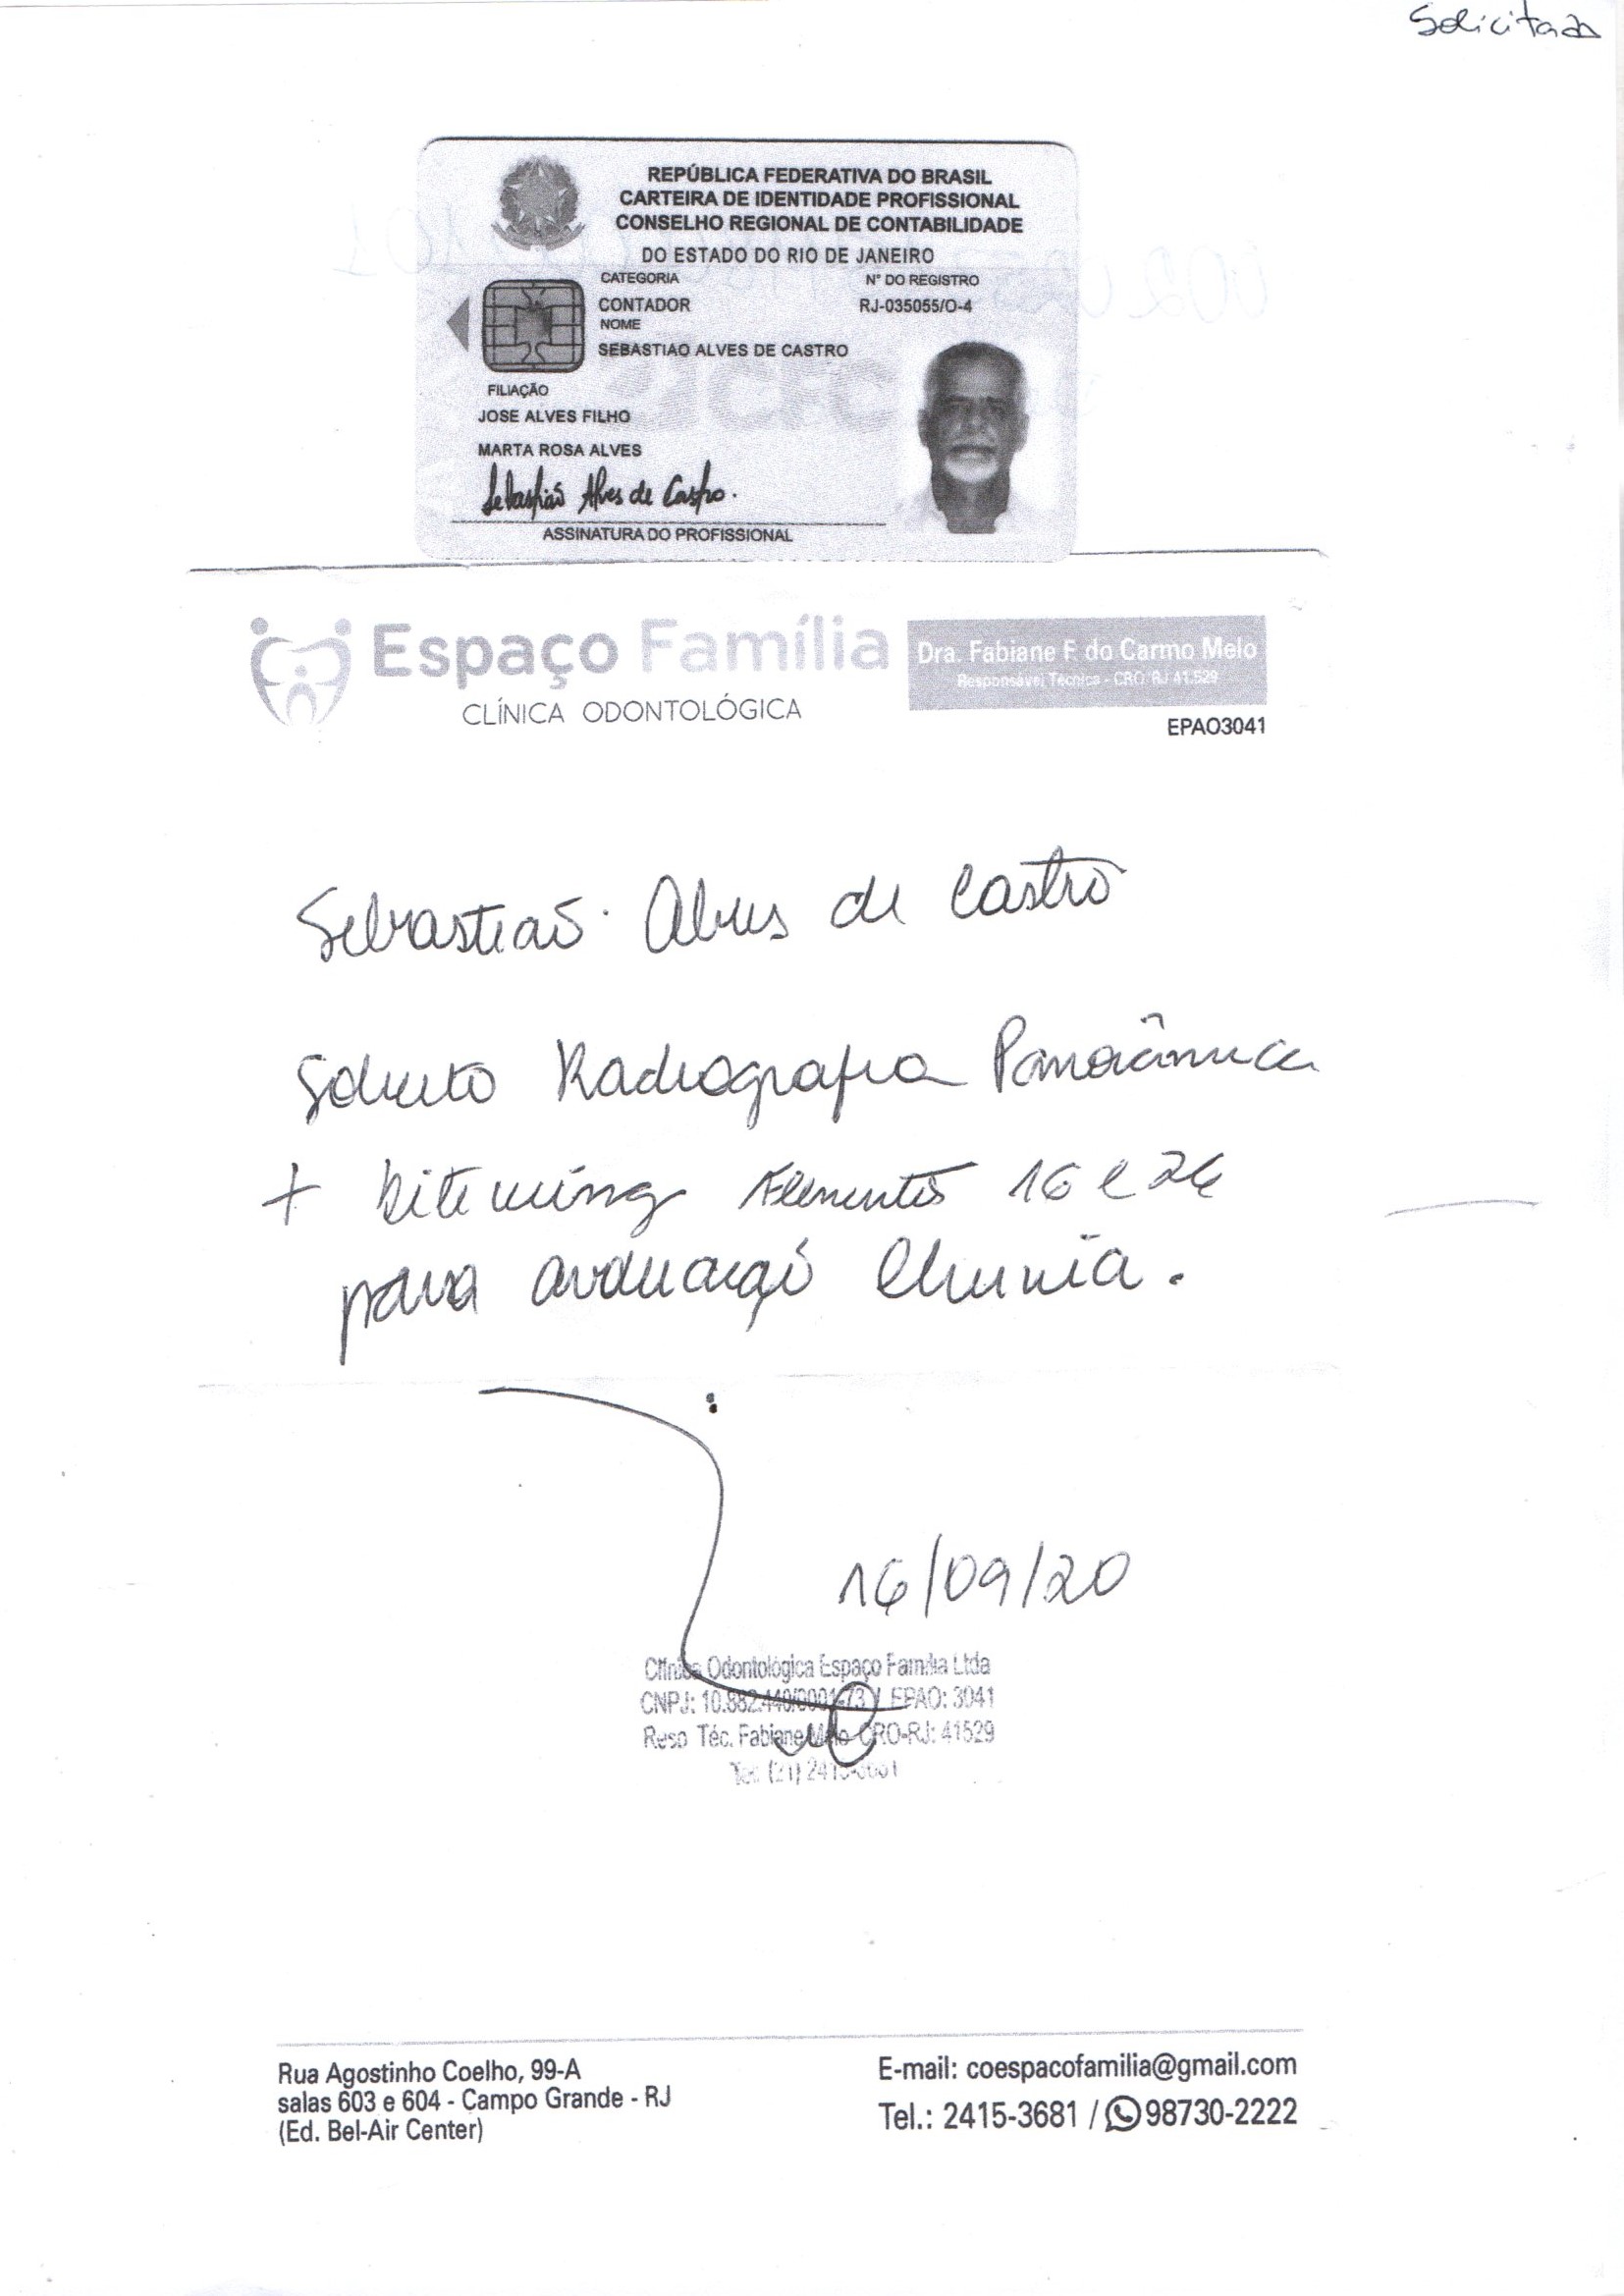 Solicitação
REPÚBLICA FEDERATIVA DO BRASIL
CARTEIRA DE IDENTIDADE PROFISSIONAL
CONSELHO REGIONAL DE CONTABILIDADE
DO ESTADO DO RIO DE JANEIRO
CATEGORIA Nº DO REGISTRO
CONTADOR RJ-035055/O-4
NOME
SEBASTIAO ALVES DE CASTRO
FILIAÇÃO
JOSE ALVES FILHO
MARTA ROSA ALVES
Sebastião Alves de Castro.
ASSINATURA DO PROFISSIONAL
Espaço Família
CLÍNICA ODONTOLÓGICA
Dra. Fabiane F. do Carmo Melo
Responsável Técnica - CRO RJ 41.529
EPAO3041
Sebastião Alves de Castro
Solicito Radiografia Panorâmica
+ Bitewing Elementos 16 e 26
para avaliação clínica.
16/09/20
Clínica Odontológica Espaço Família Ltda
CNPJ: 10.882.440/0001-73 / EPAO: 3041
Resp. Téc. Fabiane Melo CRO-RJ: 41529
Tel: (21) 2415-3681
Rua Agostinho Coelho, 99-A
salas 603 e 604 - Campo Grande - RJ
(Ed. Bel-Air Center)
E-mail: coespacofamilia@gmail.com
Tel.: 2415-3681 / 98730-2222